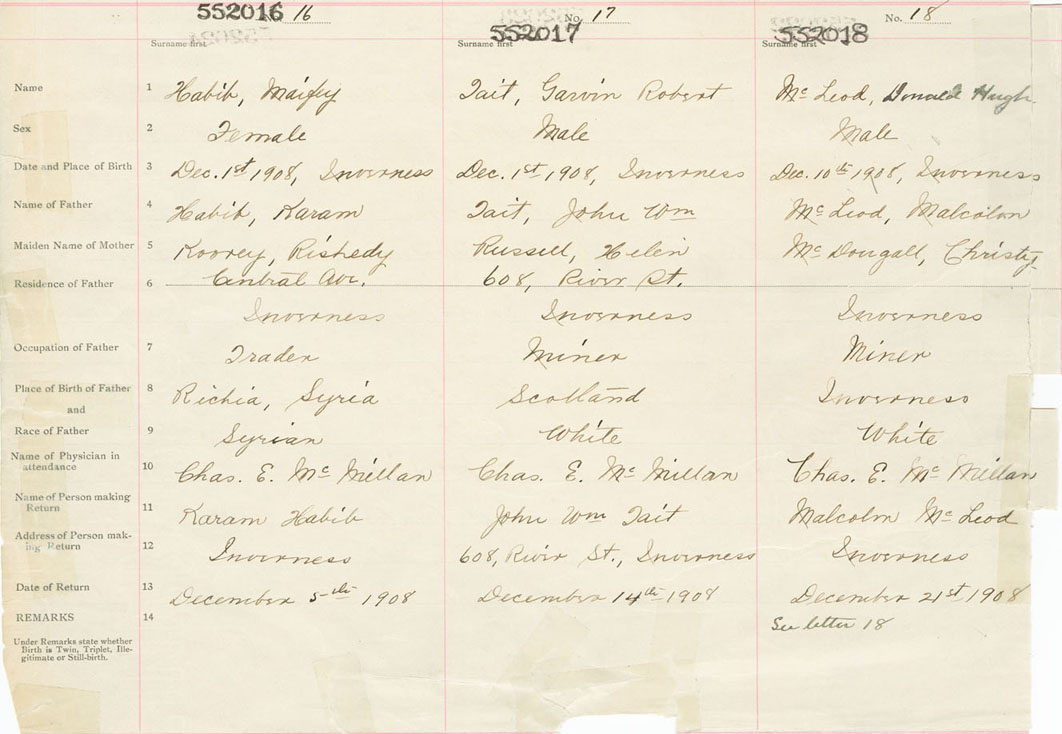 552016 No. 16 No. 17 No. 18
552017 552018
Surname first Surname first Surname first
Name 1 Habib, Maifey Tait, Garvin Robert Mc Leod, Donald Hugh
Sex 2 Female Male Male
Date and Place of Birth 3 Dec. 1st 1908, Inverness Dec. 1st 1908, Inverness Dec. 10th 1908, Inverness
Name of Father 4 Habib, Karam Tait, John Wm Mc Leod, Malcolm
Maiden Name of Mother 5 Koorey, Rishedy Russell, Helen Mc Dougall, Christy
Residence of Father 6 Central Ave. 608, River St.
Inverness Inverness Inverness
Occupation of Father 7 Trader Miner Miner
Place of Birth of Father 8 Richia, Syria Scotland Inverness
and
Race of Father 9 Syrian White White
Name of Physician in
attendance 10 Chas. E. Mc Millan Chas. E. Mc Millan Chas. E. Mc Millan
Name of Person making
Return 11 Karam Habib John Wm Tait Malcolm Mc Leod
Address of Person mak-
ing Return 12 Inverness 608, River St., Inverness Inverness
Date of Return 13 December 5th 1908 December 14th 1908 December 21st 1908
REMARKS 14 See letter 18
Under Remarks state whether
Birth is Twin, Triplet, Ille-
gitimate or Still-birth.